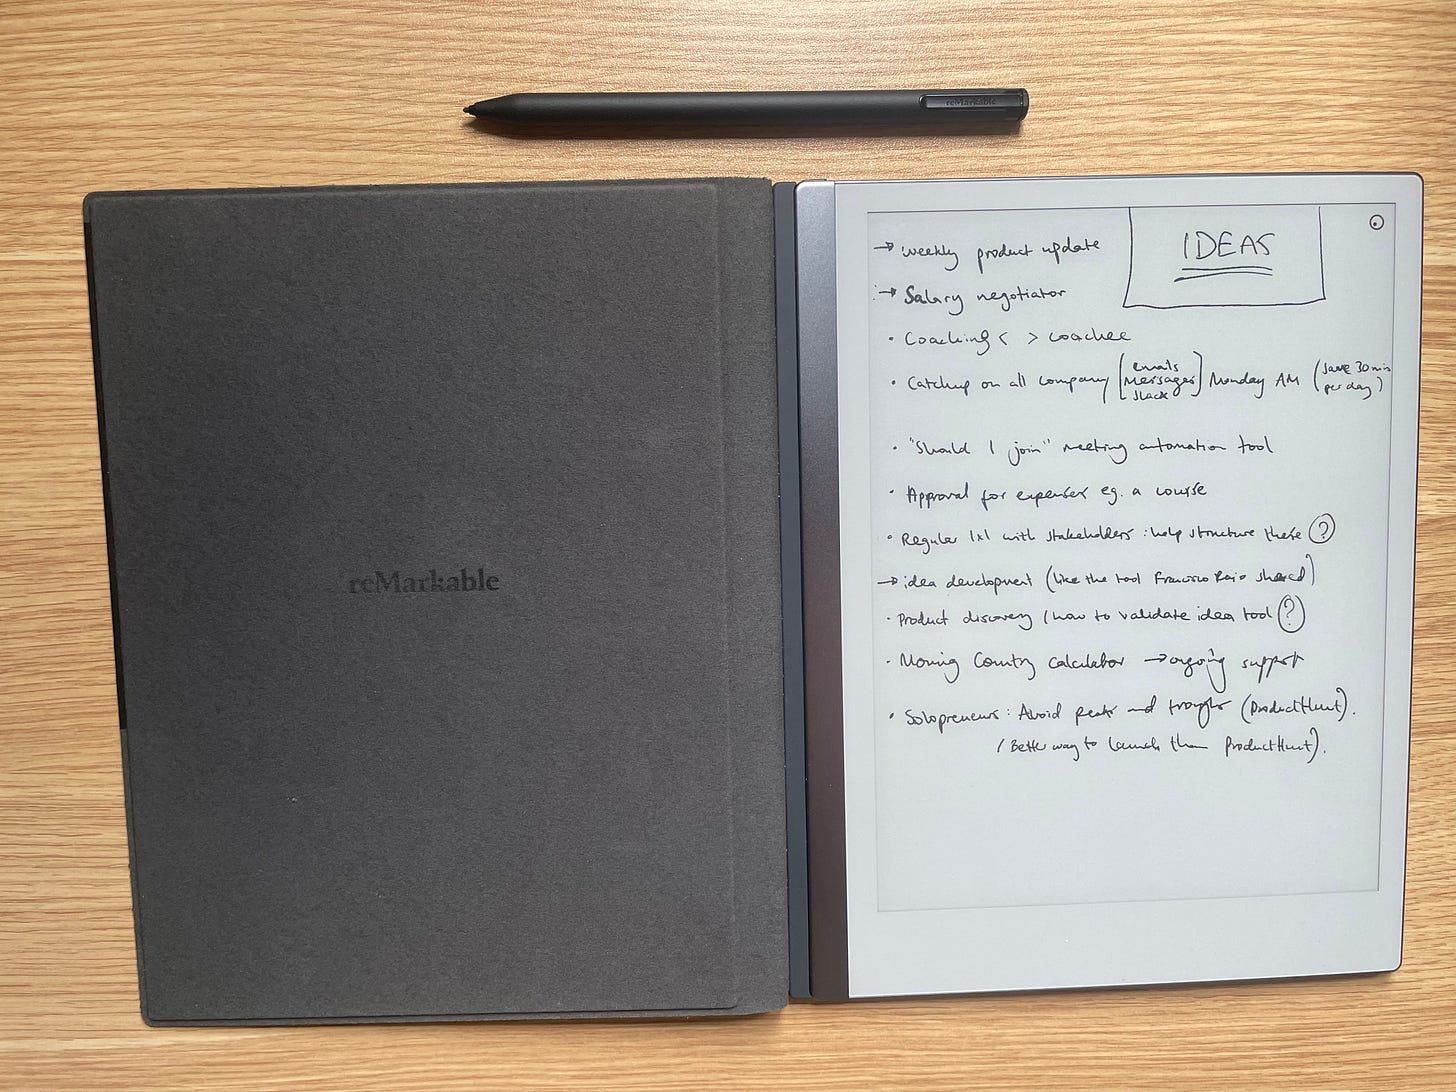 reMarkable
reMarkable
IDEAS
→ weekly product update
→ Salary negotiator
• Coaching < > coachee
• Catchup on all company [emails messages slack] Monday AM (save 30 min per day)
• "Should I join" meeting automation tool
• Approval for expenses eg. a course
• Regular 1x1 with stakeholders : help structure these ?
→ idea development (like the tool Francisco shared)
• Product discovery / how to validate idea tool ?
• Moving Country calculator → ongoing support
• Solopreneurs : Avoid peaks and troughs (ProductHunt).
/ Better way to launch than ProductHunt).